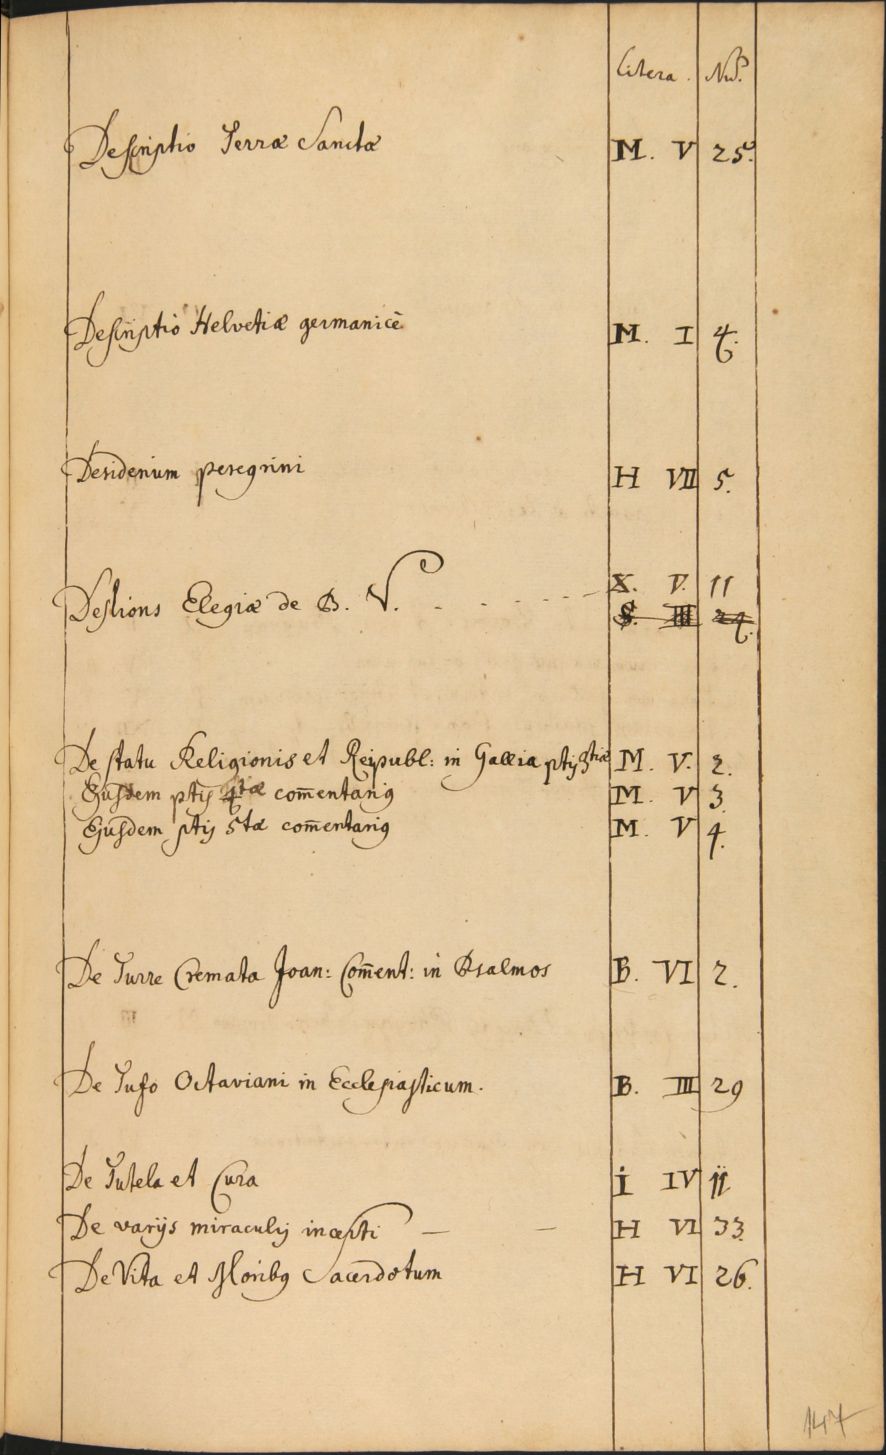 Litera. Nu͂s.
Descriptio Terræ Sanctæ M. V 25.
Descriptio Helvetiæ germanicè M. I 4.
Desiderium peregrini H VII 5.
X. V. 11
Destions Elegiæ de B. V. S. III 24.
De statu Religionis et Reipubl: in Gallia ptis 3tiæ M. V. 2.
Ejusdem ptis 4tæ com̄entarius M. V 3.
Ejusdem ptis 5tæ com̄entarius M. V 4.
De Turre Cremata Joan: Com̄ent: in Psalmos B. VI 2.
De Tufo Octaviani in Ecclesiasticum. B. III 29
De Tutela et Cura i IV 11
De varijs miraculis H VI 33.
De Vita et Moribus Sacerdotum H VI 26.
147